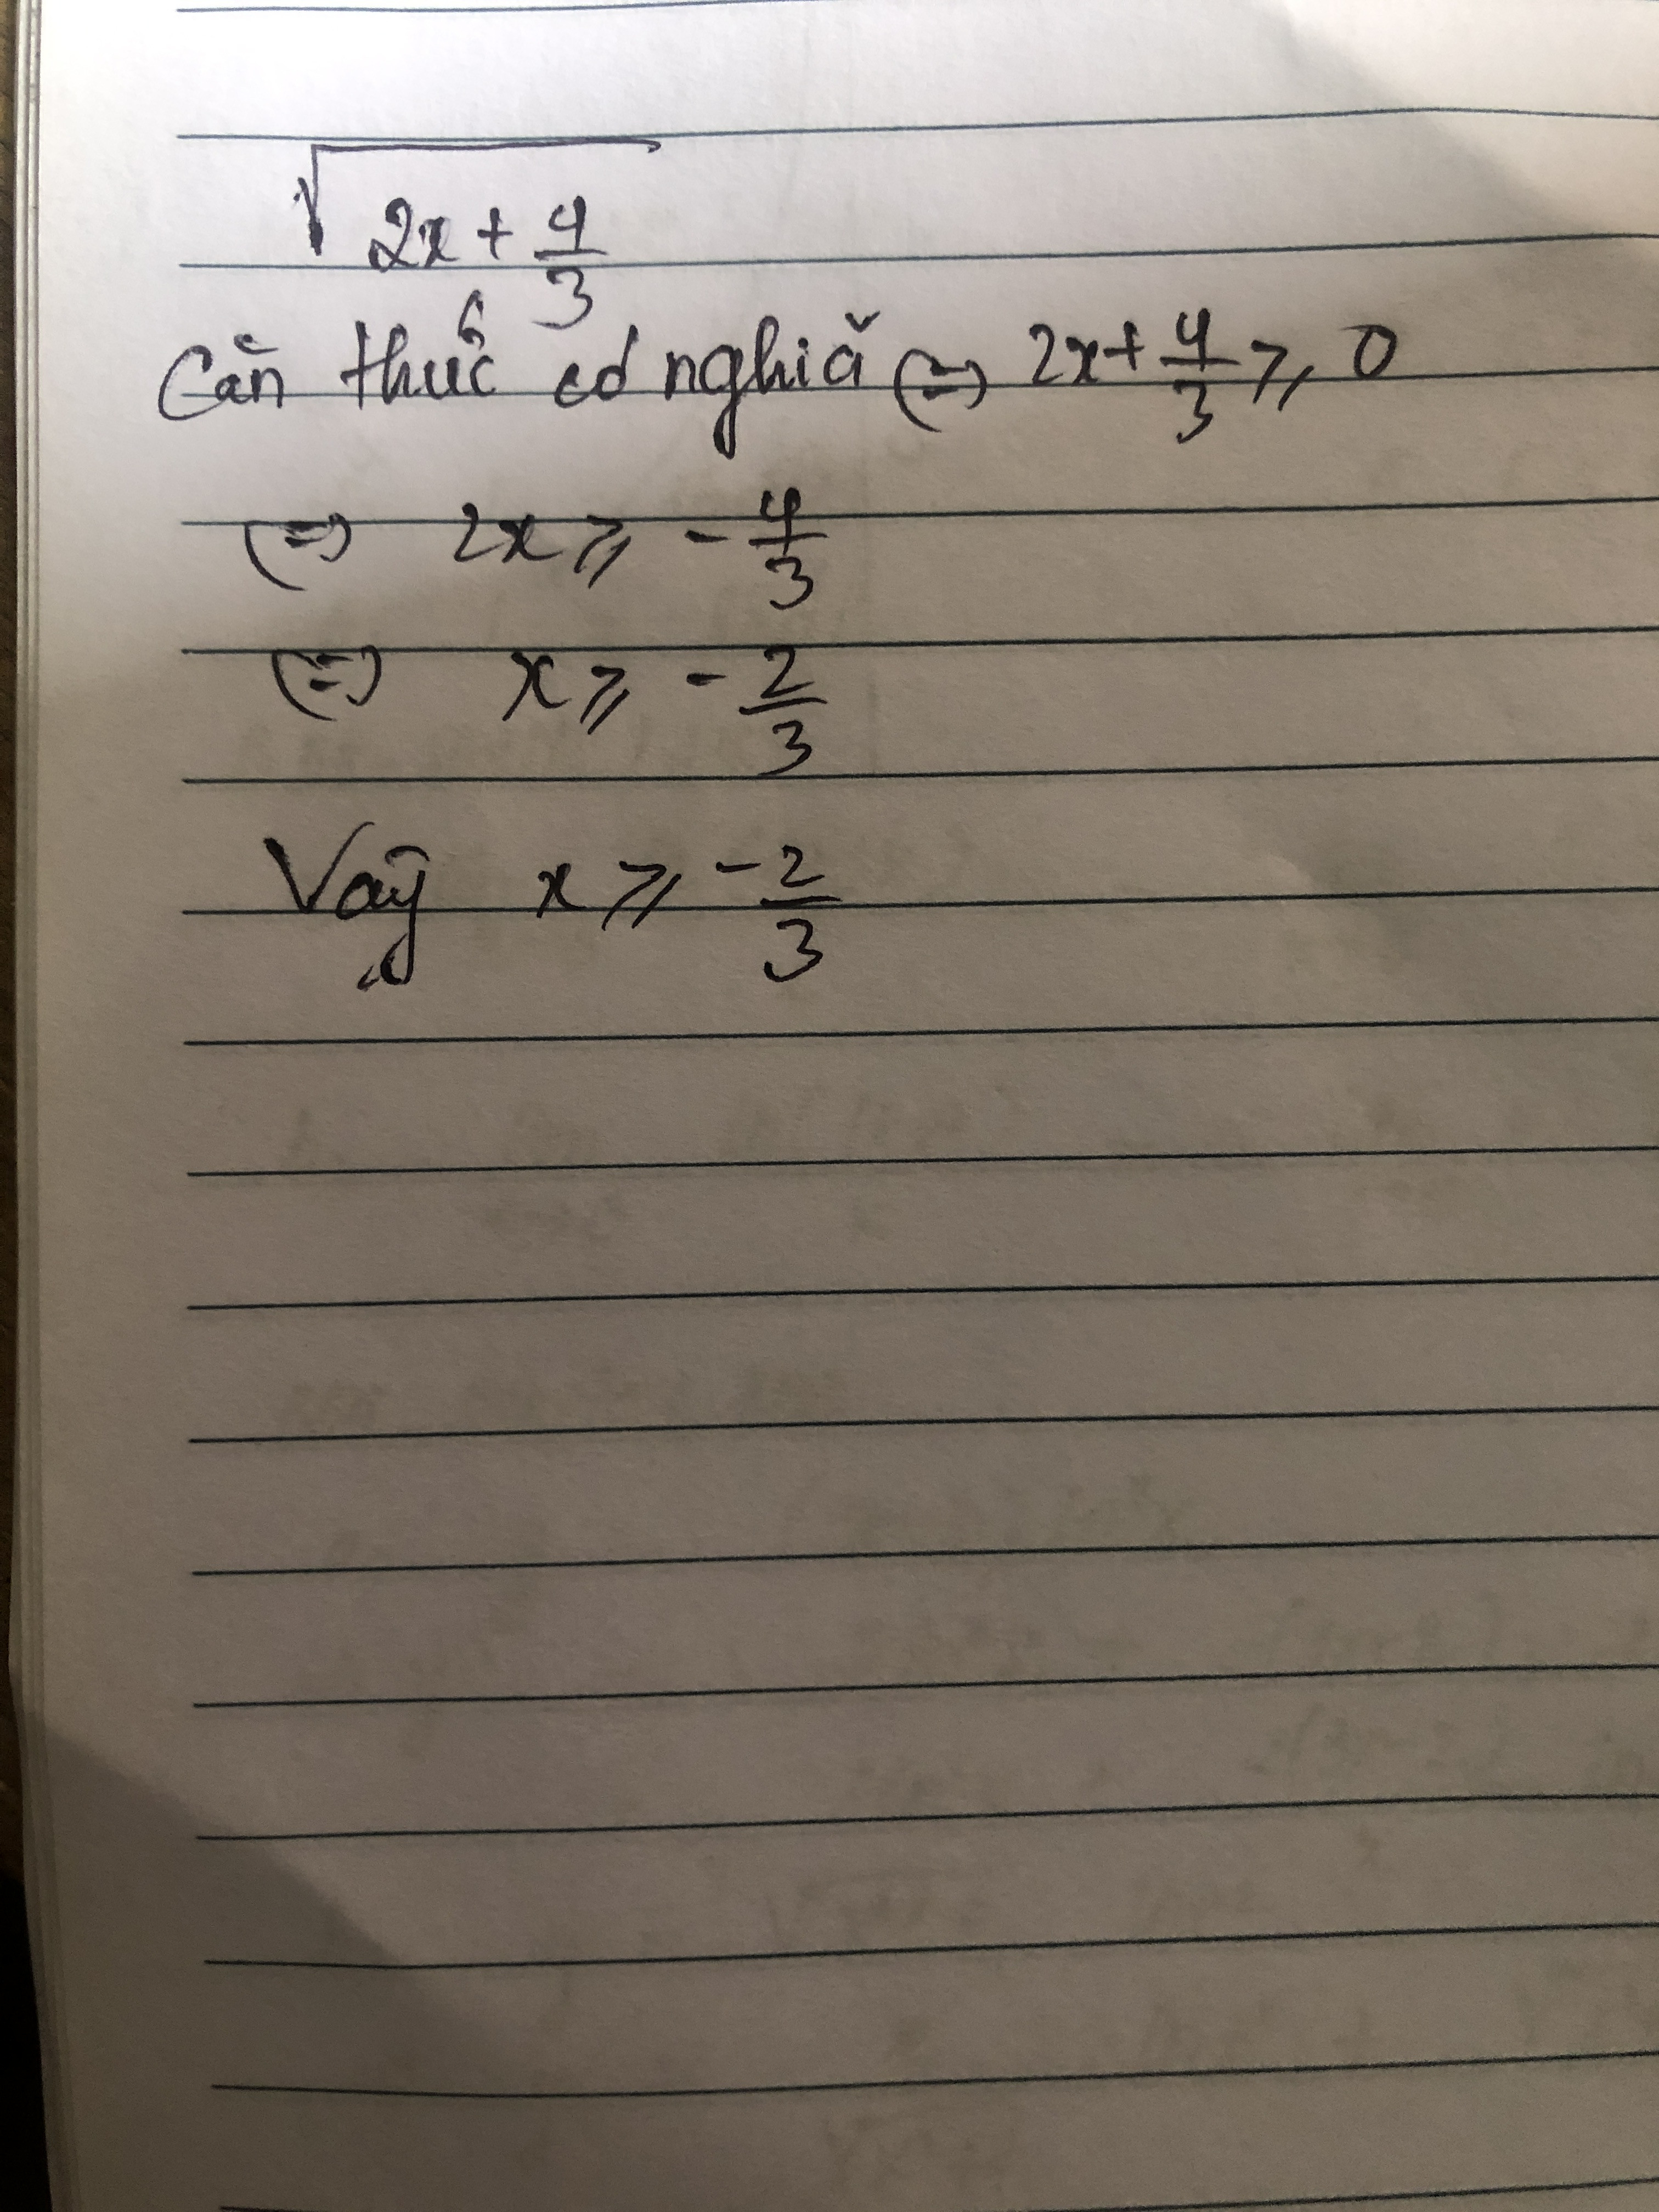 √(2x + 4/3)
Căn thức có nghĩa (=) 2x + 4/3 ⩾ 0
(=) 2x ⩾ - 4/3
(=) x ⩾ - 2/3
Vậy x ⩾ - 2/3